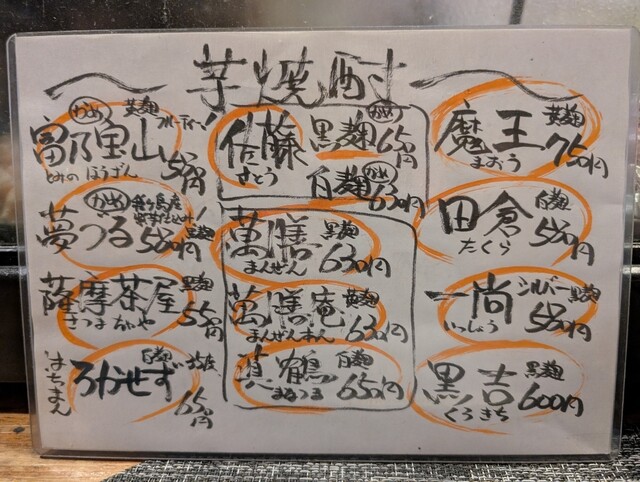 芋焼酎
かめ
黄麹
フルーティー!
富乃宝山
とみの ほうざん
580円
かめ
夢づる
580円
黒麹
薩摩茶屋
さつま ぢゃや
黒麹
550円
はちまん
ろかせず
白麹
650円
佐藤
さとう
黒麹
かめ
650円
白麹
かめ
630円
萬膳
まんぜん
黒麹
630円
萬膳庵
まんぜんあん
黄麹
630円
真鶴
まなつる
白麹
650円
魔王
まおう
黄麹
750円
田倉
たくら
白麹
580円
一尚
いっしょう
シルバー
黒麹
580円
黒吉
くろきち
黒麹
600円